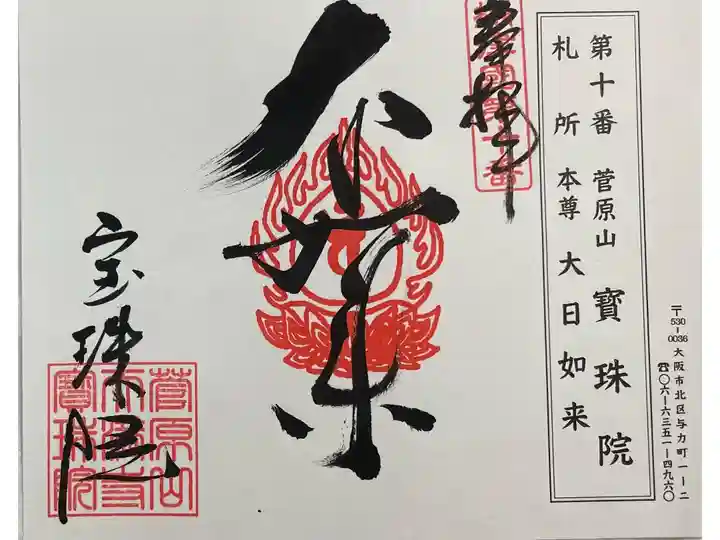 第十番 菅原山 寳珠院
札所本尊 大日如来
〒530-0036 大阪市北区与力町一-二
☎〇六-六三五一-四九六〇
奉拝
大日如来
宝珠院